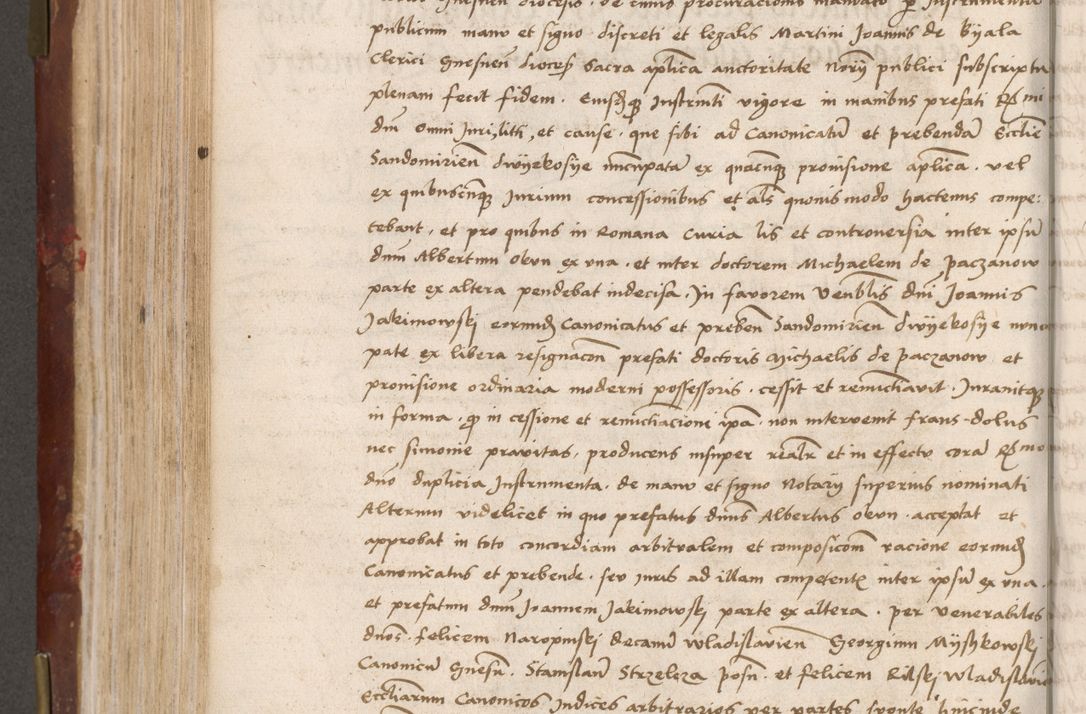 publicum manu et signo discreti et legalis Martini Joannis de Byala
Clerici Gnesnen̄ dioces̄ Sacra aplica auctoritate Norÿ publici subscriptu
plenam fecit fidem. Eiusdq̄ Instrmti vigore in manibus prefati R̄mi
dnī omni Jurisliti, et cause, que sibi ad Canonicatū et prebendā Ecclie
Sandomirien̄ dwÿekosÿe nuncupatā ex quacūq̄ prouisione aplica. vel
ex quibuscūq̄ Jurium concessionibus et als quouis modo hactenus compe:
tebant, et pro quibus in Romana Curia lis et controuersia inter ipsū
dnum Albertum okun ex vna. et inter doctorem Michaelem de paczanow
parte ex altera pendebat indecisa. In fauorem Venblis dni Joannis
Jakimowskj eorumd̄ Canonicatus et preben̄ Sandomirien̄ dwÿekosÿe nuncu
pate ex libera resignacon̄ prefati doctoris Michaelis de paczanow et
prouisione ordinaria moderni possessoris. cessit et renūctiauit. Jurauitq̄
in forma. q̄ in cessione et renūctiacioni ipā. non interuenit fraus. dolus
nec simonie prauitas, producens insuper realr et in effectu corā R̄mo
dno duplicia Instrumenta. de manu et signo Notarÿ superius nominati
Alterum videlicet in quo prefatus dnus Albertus okun. acceptat et
approbat in toto concordiam arbitralem et composicom̄ racione eorumd̄
Canonicatus et prebende. seu iuris ad illam competentē inter ipsū ex vna.
et prefatum dnum Joannem Jakimowskj parte ex altera. per venerabiles
dnos. felicem Naropinskj decanū wladislauien̄ Georgium Myshkowskj
Canonicū Gnesn̄. Stanislaū Strzeleza posn̄. et felicem Rilskj Wladislauien̄
Eccliarum Canonicos Judices arbitrarios per partes sponte hincinde